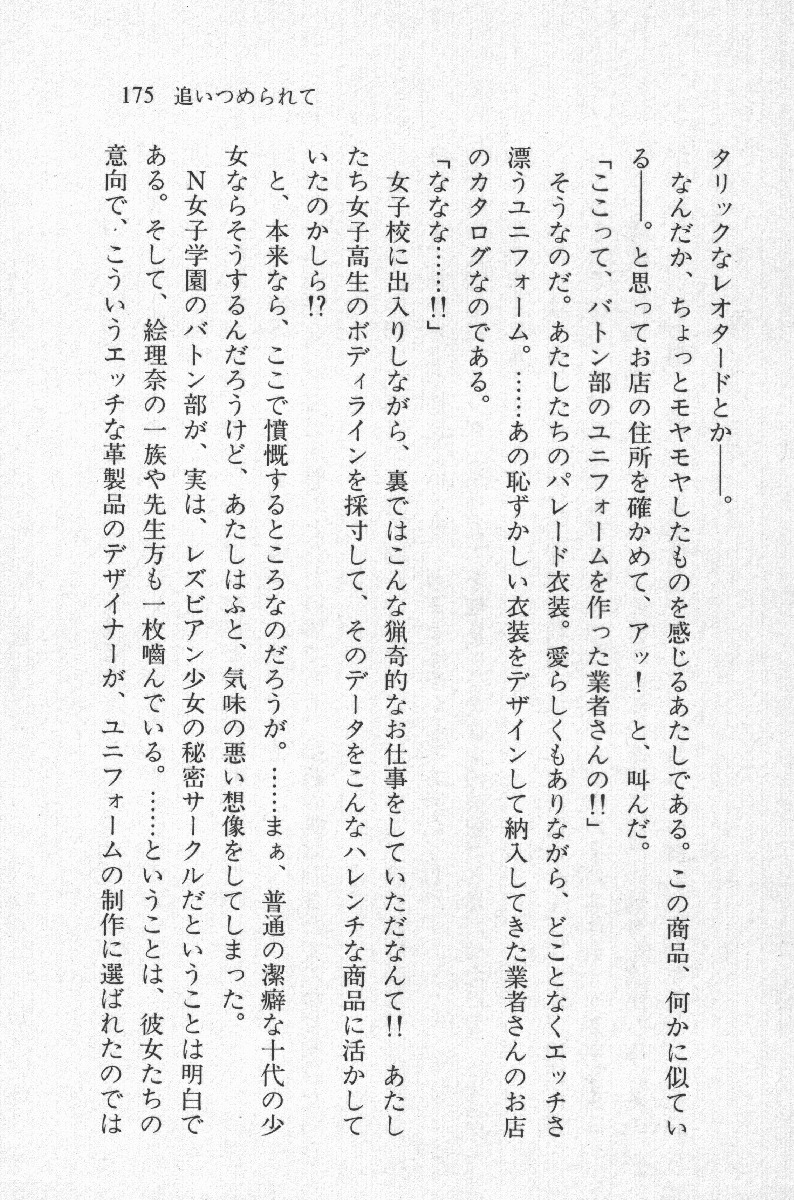 175 追いつめられて
タリックなレオタードとか――。
　なんだか、ちょっとモヤモヤしたものを感じるあたしである。この商品、何かに似てい
る――。と思ってお店の住所を確かめて、アッ！　と、叫んだ。
「ここって、バトン部のユニフォームを作った業者さんの!!」
　そうなのだ。あたしたちのパレード衣装。愛らしくもありながら、どことなくエッチさ
漂うユニフォーム。……あの恥ずかしい衣装をデザインして納入してきた業者さんのお店
のカタログなのである。
「ななな……!!」
　女子校に出入りしながら、裏ではこんな猟奇的なお仕事をしていただなんて!!　あたし
たち女子高生のボディラインを採寸して、そのデータをこんなハレンチな商品に活かして
いたのかしら!?
　と、本来なら、ここで憤慨するところなのだろうが。……まぁ、普通の潔癖な十代の少
女ならそうするんだろうけど、あたしはふと、気味の悪い想像をしてしまった。
　Ｎ女子学園のバトン部が、実は、レズビアン少女の秘密サークルだということは明白で
ある。そして、絵理奈の一族や先生方も一枚噛んでいる。……ということは、彼女たちの
意向で、こういうエッチな革製品のデザイナーが、ユニフォームの制作に選ばれたのでは